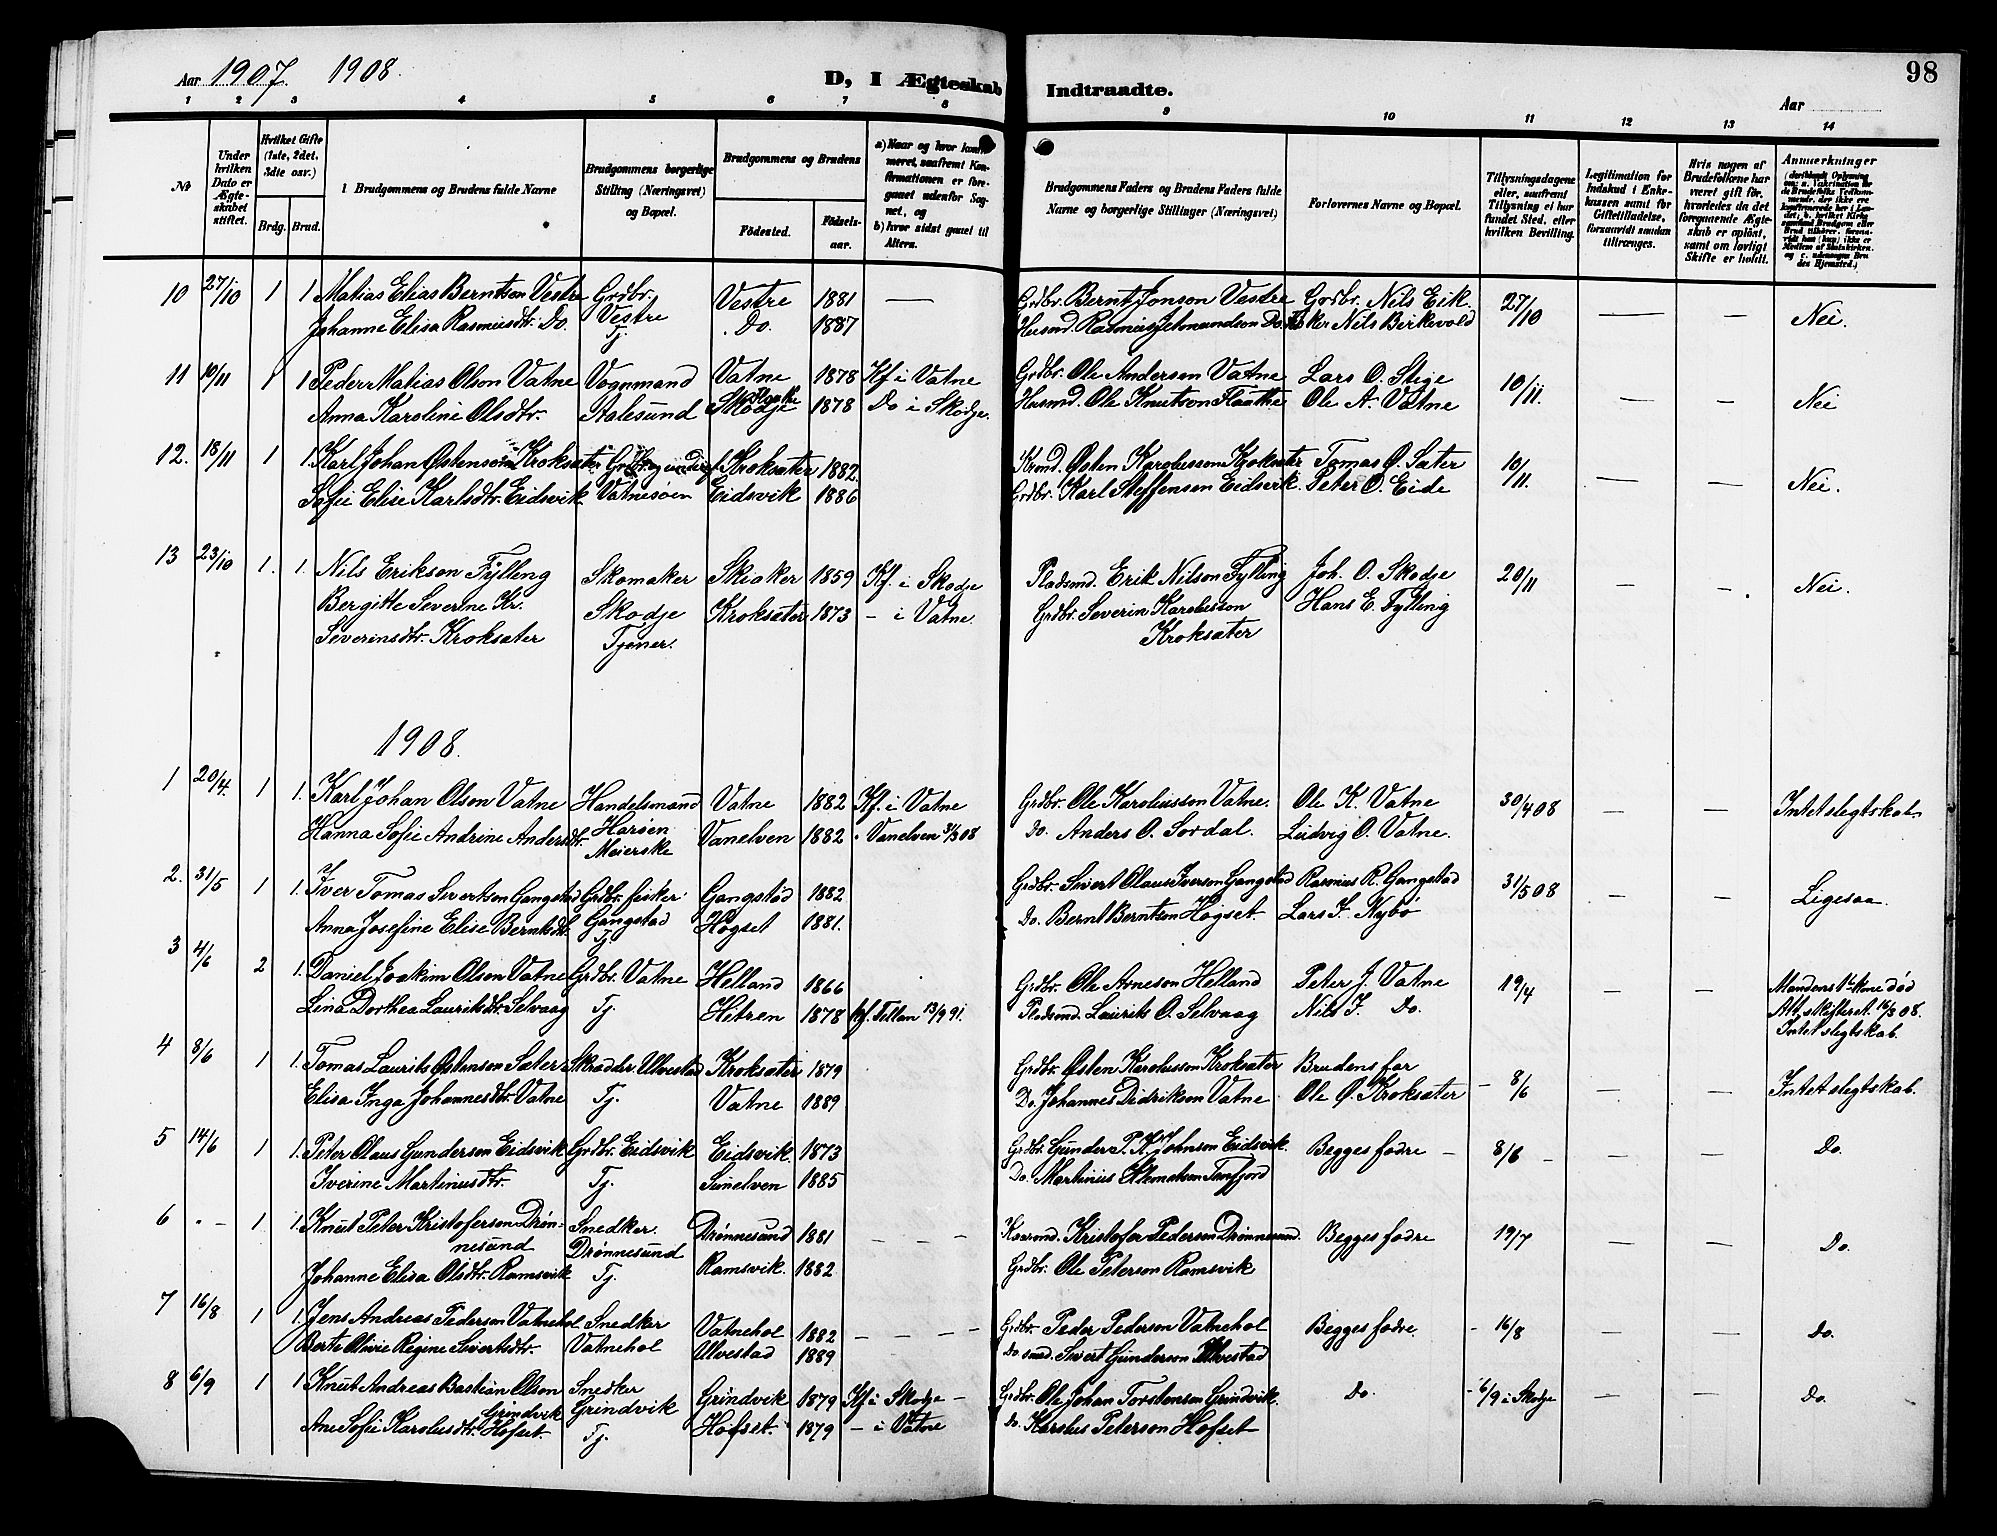 Aar 1907. 1908.
D, I Ægteskab Indtraadte.
Aar
98
1 2 3 4 5 6 7 8 9 10 11 12 13 14
No
Under hvilken Dato er Ægteskabet stiftet.
Hvilket Gifte (1ste, 2det, 3die osv.)
Brdg. Brud.
Brudgommens og Brudens fulde Navne
Brudgommens borgerlige Stilling (Næringsvei) og Bopæl.
Brudgommens og Brudens
Fødested.
Fødselsaar.
b) hvor sidst gaaet til Alters.
Brudgommens Faders og Brudens Faders fulde Navne og borgerlige Stillinger (Næringsvei)
Forlovernes Navne og Bopæl.
Tillysningsdagene eller, saafremt Tillysning ei har fundet Sted, efter hvilken Bevilling.
Legitimation for Indskud i Enkekassen samt for Giftetilladelse, forsaavidt saadan tiltrænges.
Hvis nogen af Brudefolkene har været gift før, hvorledes da det foregaaende Ægteskab er opløst, samt om lovligt Skifte er holdt.
Anmærkninger
10 27/10 1 1 Matias Elias Berntson Vestre Grdbr. Vestre 1881 — Grdbr. Bernt Jonson Vestre Grdbr. Nils Eik. 27/10 — — Nei.
Johanne Elisa Rasmusdtr. Do. Vestre Tj. Do. 1887 Husmd. Rasmus Do. Nils Birkevold
11 10/11 1 1 Peder Matias Olson Vatne Vognmand Vatne 1878 Kf. i Vatne Grdbr. Ole Anderson Vatne Lars O. Stige 10/11. — — Nei
Anna Karoline Olsdtr. Aalesund Skodje 1878 Do i Skodje. Husmd. Ole Knutson Flaathe Ole A. Vatne
12. 18/11 1 1. Karl Johan Østenson Kroksater Kroksater 1882. Østen Karolusson Kroksater Tomas Ø. Sater 10/11. — — Nei.
Sofie Elise Karlsdtr. Eidsvik Vatnesøen Eidsvik 1886 Grdbr. Karl Steffensen Eidsvik. Peter O. Eide
13 23/10 1. 1. Nils Erikson Fylling Skomaker Skiaker 1859 Kf. i Skodje Pladsmd. Erik Nilson Fylling Joh. O. Skodje 20/11 — Nei.
Bergitte Severine Kr. Skodje Kroksater 1873 – i Vatne. Grdbr. Severin Karolusson Hans E. Fylling
Severinsdtr. Kroksater Tjener. Kroksater
1908.
1 20/4. 1 1. Karl Johan Olson Vatne Handelsmand Vatne 1882 Kf. i Vatne Grdbr. Ole Karolusson Vatne. Ole K. Vatne 30/4 08 — — Intet slegtskab.
Hanna Sofie Andrine Andersdtr. Harøen Meierske Vanelven 1882 Vanelven Do. Anders O. Sordal. Ludvig O. Vatne.
2. 31/5 1 1. Iver Tomas Sivertson Gangstad Grdbr. fisker Gangstad 1882 Grdbr. Sivert Olaus Iverson Gangstad Rasmus R. Gangstad 31/5 08 — — Ligesaa.
Anna Josefine Elise Berntsdtr. Gangstad Tj. Høgset 1881. Do. Bernt Berntson Høgset. Lars I. Nybø
3 4/6 2 1. Daniel Joakim Olson Vatne Grdbr. Vatne Helland 1866 Grdbr. Ole Arneson Helland Peter J. Vatne 19/4 — — Mandens 1ste Kone død
Lina Dorthea Lauritsdtr. Selvaag Tj. Hitren 1878 Kf. Fillan 13/9 91. Pladsmd. Laurits O. Selvaag Nils J. Do. Att. skifteret. 16/3 08.
Intet slegtskab.
4 8/6 1 1. Tomas Laurits Østenson Sater Skrædder. Ulvestad Kroksater 1879 Grdbr. Østen Karolusson Kroksater Brudens far – 8/6 — — Intet slegtskab.
Elisa Inga Johannesdtr. Vatne Tj. Vatne 1889 Do. Johannes Didrikson Vatne Ole Ø. Kroksater
5 14/6 1 1. Peter Olaus Gunderson Eidsvik Grdbr. Eidsvik Eidsvik. 1873 Grdbr. Gunder P. K. Johnson Eidsvik. Begges fædre – 8/6 – — — Do.
Iverine Martinusdtr. Tj. Sunelven 1885 Do. Martinus
6 . – 1. 1. Knut Peter Kristoferson Drønnesund Snedker. Drønnesund Drønnesund 1881 – – – Kaarmd. Kristofer Pederson Drønnesund. Begges fædre 19/7 — — Do.
Johanne Elisa Olsdtr. Ramsvik Tj. Ramsvik. 1882. Grdbr. Ole Peterson Ramsvik
7 16/8 1 1. Jens Andreas Pederson Vatnehol Snedker Vatnehol 1882 – – – – Grdbr. Peder Pederson Vatnehol Begges fædre. – 16/8 — — Do.
Berte Olivie Regine Sivertsdtr. Vatnehol Ulvestad 1889 Do Sivert Gunderson Ulvestad
8 6/9 1 1 Knut Andreas Bastian Olson Grindvik Snedker Grindvik 1879 Kf. i Skodje – Grdbr. Ole Johan Torstenson Grindvik. Do. – 6/9 i Skodje — — Do.
Ane Sofie Karolusdtr. Hofset. Grindvik Tj. Hofset. 1879 – i Vatne Do. Karolus Peterson Hofset